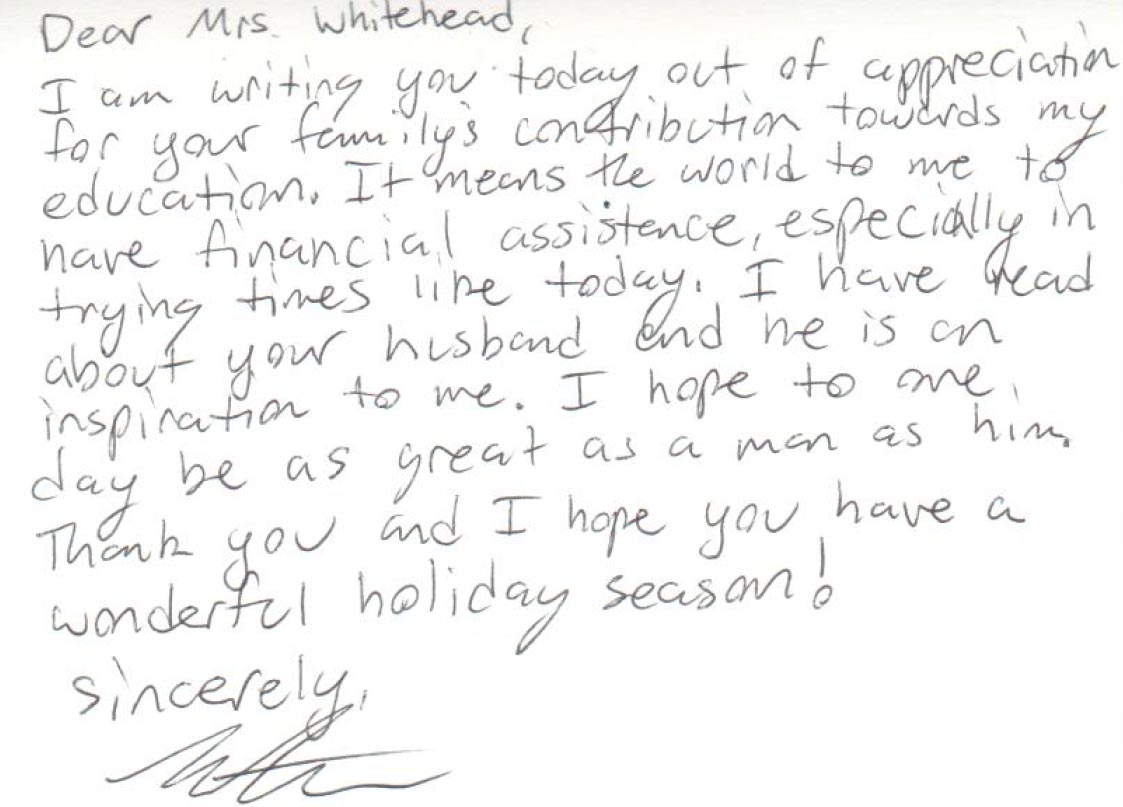 Dear Mrs. Whitehead,
I am writing you today out of appreciation
for your family's contribution towards my
education. It means the world to me to
have financial assistence, especially in
trying times like today. I have read
about your husband and he is an
inspiration to me. I hope to one
day be as great as a man as him.
Thank you and I hope you have a
wonderful holiday season!
sincerely,